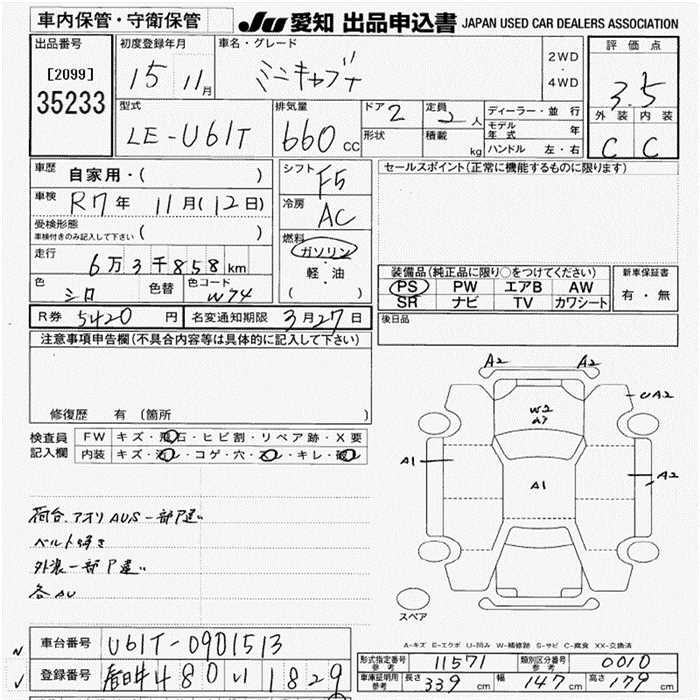 車内保管・守衛保管
JU 愛知 出品申込書 JAPAN USED CAR DEALERS ASSOCIATION
出品番号
[2099]
35233
初度登録年月
15 11月
車名・グレード
ミニキャブ
2WD
・
4WD
評価点
3.5
外装 内装
C C
型式
LE-U61T
排気量
660 cc
ドア 2
定員 2 人
形状
積載 kg
ディーラー・並行
モデル年式 年
ハンドル 左・右
車歴 自家用・( )
車検 R7年 11月(12日)
受検形態
車検付きのみ記入して下さい ( )
走行 6万3千858km
色 シロ 色替 色コード W74
シフト F5
冷房 AC
燃料
ガソリン
・
軽・油
( )
セールスポイント(正常に機能するものに限ります)
装備品(純正品に限り○をつけてください)
PS PW エアB AW
SR ナビ TV カワシート
新車保証書
有・無
R券 5420 円 名変通知期限 3月27日
後日品
注意事項申告欄(不具合内容等は具体的に記入して下さい)
修復歴 有 (箇所 )
検査員記入欄
FW キズ・飛石・ヒビ割・リペア跡・X要
内装 キズ・汚レ・コゲ・穴・スレ・キレ・破レ
荷台、アオリAUS一部P違い
ベルト鳴き
外装一部P違い
各AU
A2 A2
UA2
W2
A1
A1
A2
スペア
A-キズ E-エクボ U-凹み W-補修跡 S-サビ C-腐食 XX-交換済
車台番号 U61T-0901513
登録番号 春日井480 い 1829
形式指定番号 参考 11571 類別区分番号 参考 0010
車庫証明記入欄 参考 長さ 339 cm 幅 147 cm 高さ 179 cm